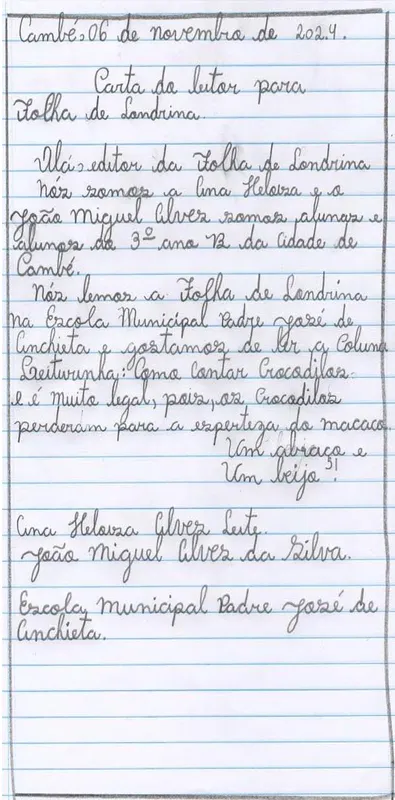 Cambé, 06 de novembro de 2024.
Carta do leitor para
Folha de Londrina.
Olá, editor da Folha de Londrina
Nós somos a Ana Heloiza e o
João Miguel Alvez somos alunas e
alunos do 3º ano B da Cidade de
Cambé.
Nós lemos a Folha de Londrina
na Escola Municipal Padre José de
Anchieta e gostamos de ler a Coluna
Leiturinha: Como Contar Crocodilos
e é muito legal, pois, os Crocodilos
perderam para a esperteza do macaco.
Um abraço e
Um beijo!
Ana Heloiza Alvez Leite.
João Miguel Alvez da Silva.
Escola Municipal Padre José de
Anchieta.